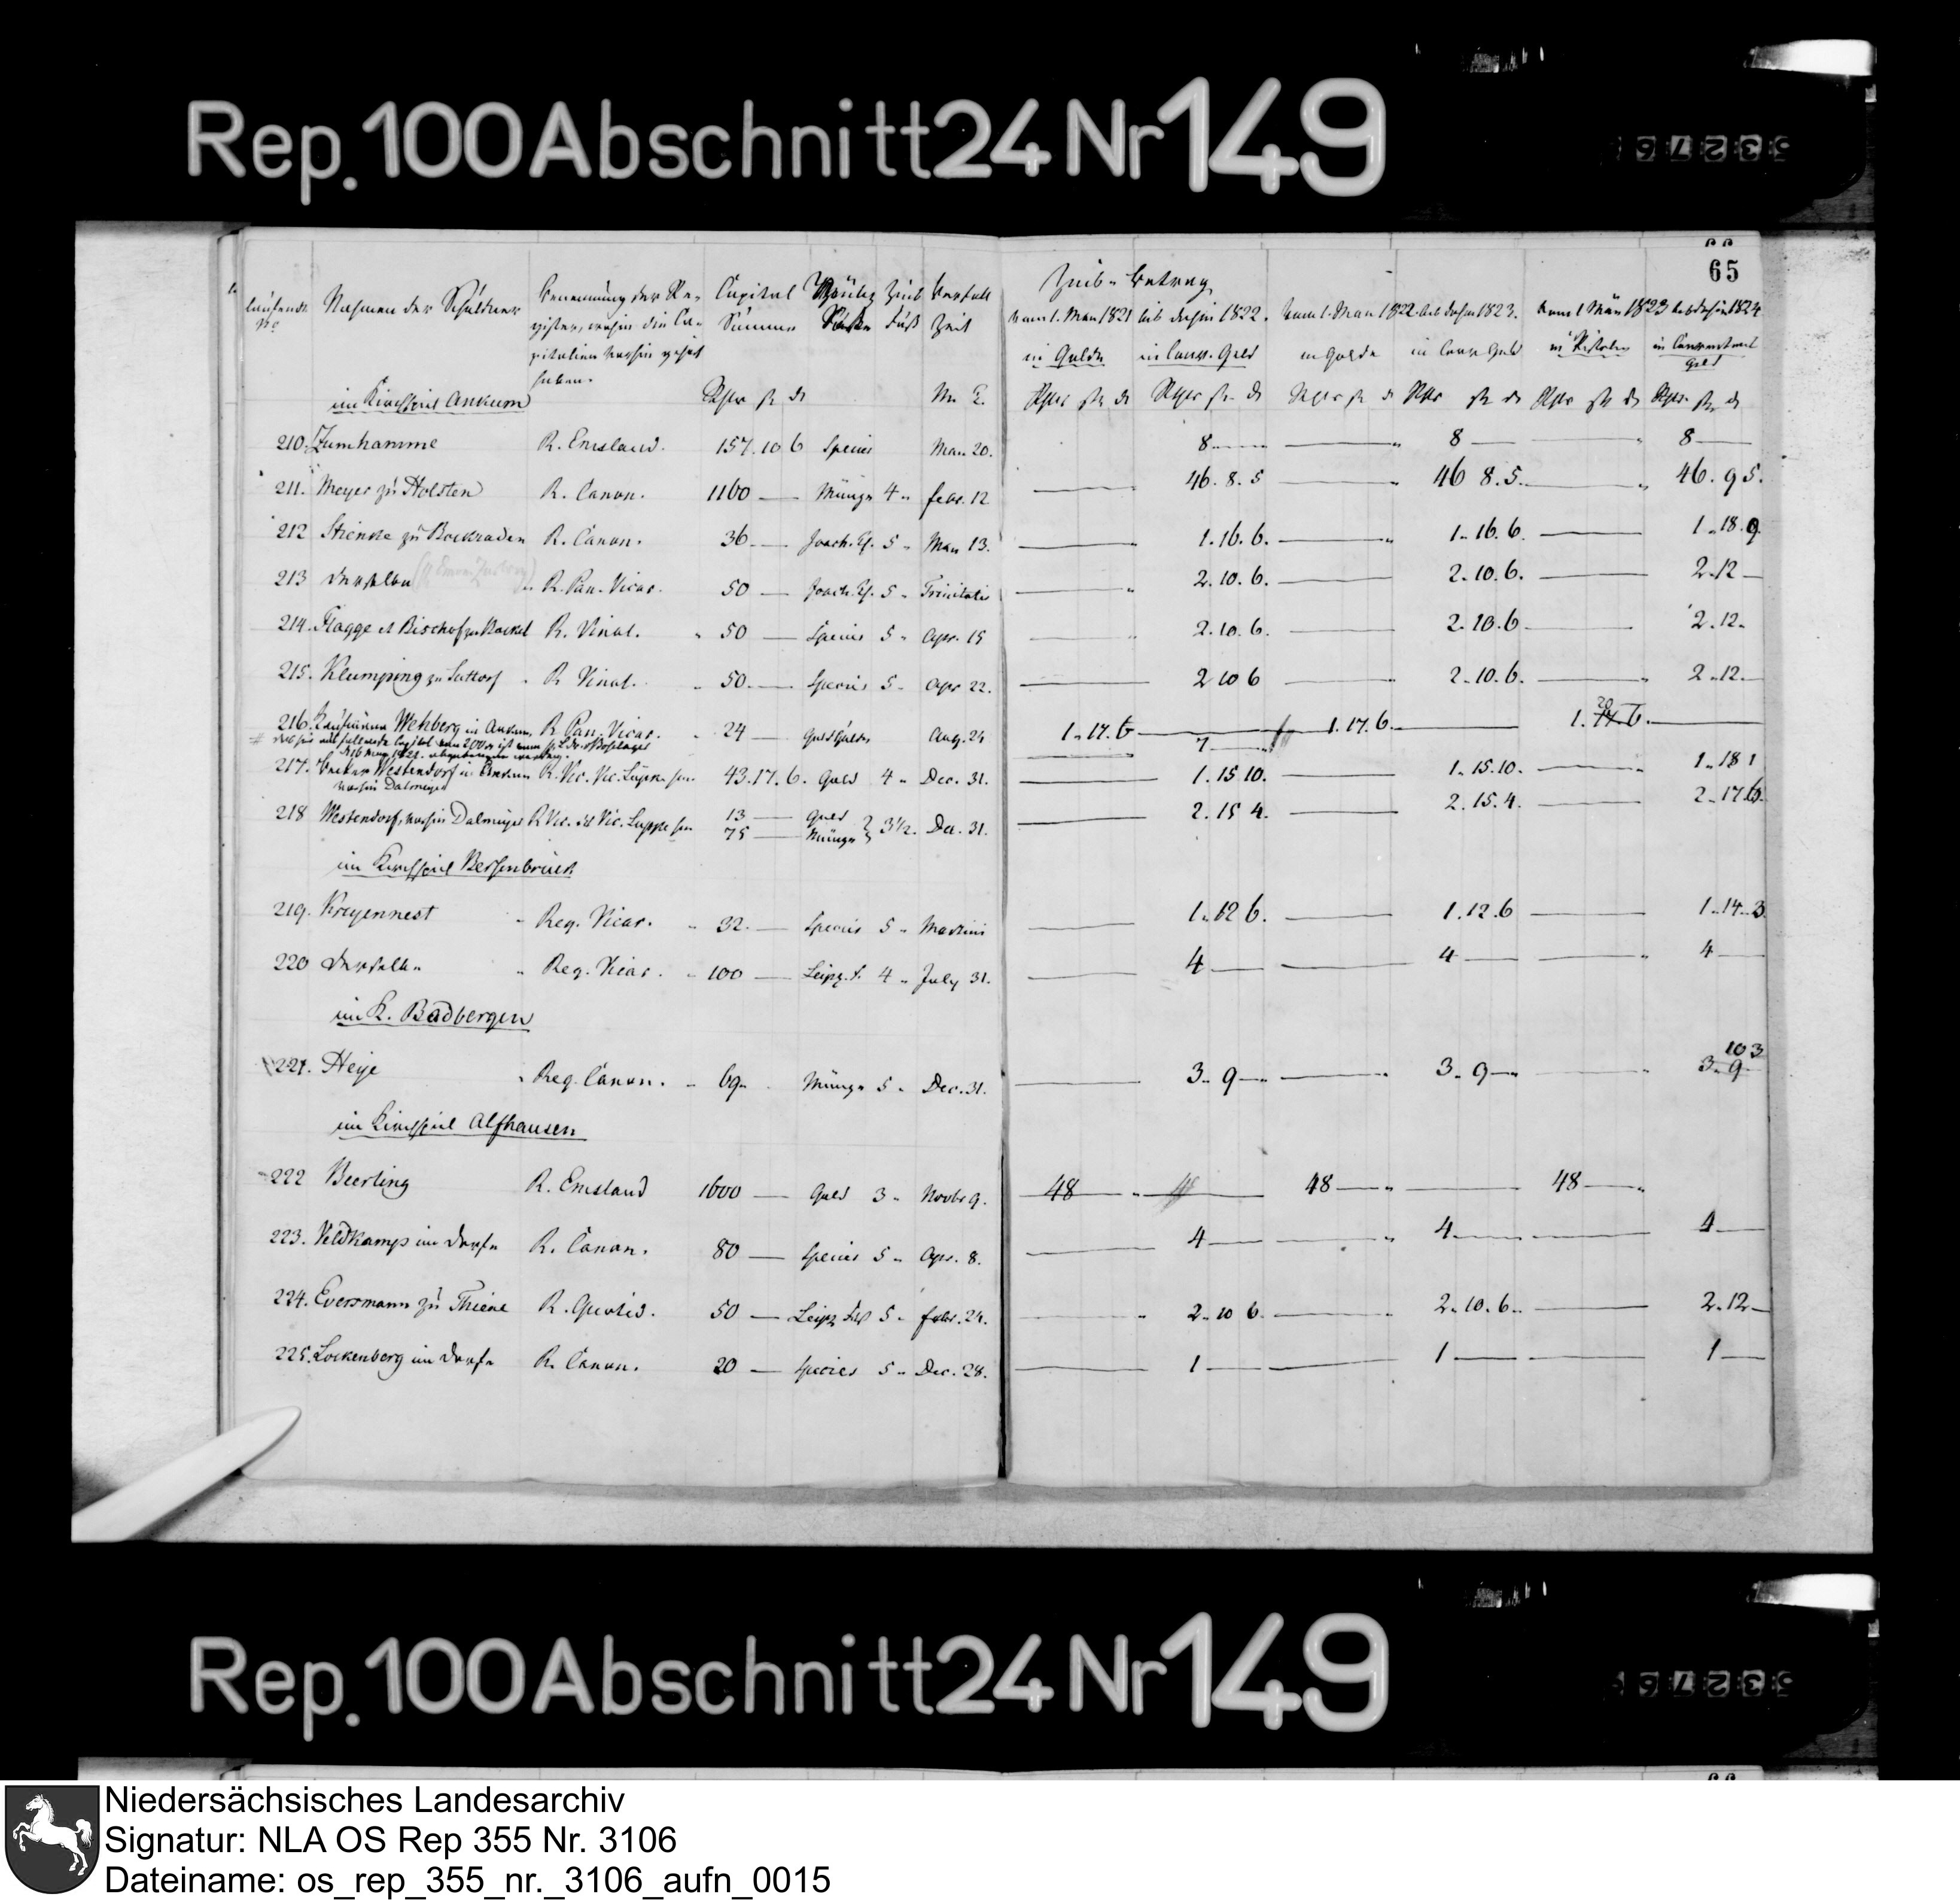 Rep.100Abschnitt24Nr149
65
laufende No
Nahmen der Schuldner
Benennung der Register, wohin die Capitalien vorhin gehört haben.
Capital Summe
Münz Sorte
Zins Fuß
Verfall Zeit
Zins-Betrag
vom 1. Man 1821 bis dahin 1822.
vom 1. Man 1822 bis dahin 1823.
vom 1 Man 1823 bis dahin 1824
in Golde in Conv. Geld in Golde in Conv Geld in Pistolen in Convent Geld
im Kirchspiel Ankum
210. Zumhamme R. Emsland. 157.10 6 Species Man 20. 8 8 8
211. Meyer zu Holsten R. Canon. 1160 — Münze 4 „ febr. 12 46. 8. 5 46 8. 5. 46. 9 5.
212 Stienke zu Bockraden R. Canon. 36 — Joach. Th. 5 „ Man 13. 1. 16. 6. 1. 16. 6. 1. 18. 9.
213 derselbe R. Pan. Vicar. 50 — Joach. Th. 5 „ Trinitatis 2. 10. 6. 2. 10. 6. 2. 12 —
214. Flagge et Bischof zu Rockel R. Vinal. 50 — Species 5 „ Apr. 15 2. 10. 6. 2. 10. 6 2. 12.
215. Klumping zu Suttorf R Vinal. 50. — Species 5 „ Apr 22. 2 10 6 2. 10. 6. 2. 12.
216. Kaufmann Wehberg in Ankum R. Pan. Vicar. 24 — Goldgulden Aug. 24 1. 17. 6 7 1. 17. 6. 20 1. 17. 6.
217. Westendorf in Ankum R. Vic. Vic. Lüpke sen 43. 17. 6. Gold 4 „ Dec. 31. 1. 15 10. 1. 15. 10. 1. 18 1
vorhin Dalmeyer
218 Westendorf, vorhin Dalmeyer R. Vic. Vic. Luppke sen 13 — Gold 75 — Münze 3 1/2. Dec. 31. 2. 15 4. 2. 15. 4. 2. 17. 6.
im Kirchspiel Bersenbrück
219. Kreyennest Reg. Vicar. 32. — Species 5 „ Martini 1. 12 6. 1. 12. 6 1. 14. 3.
220 derselbe Reg. Vicar. 100 — Leipz. f. 4 „ July 31. 4 4 4
im K. Badbergen
221. Heye Reg. Canon. 69 Münze 5 „ Dec. 31. 3. 9 3. 9 10 3 3. 9
im Kirchspiel Alfhausen
222 Beerling R. Emsland 1600 — Gold 3 „ Novbr 9. 48 48 48
223. Veldkamp im Dorfe R. Canon. 80 — Species 5 „ Apr. 8. 4 4 4
224. Eversmann zu Thiene R. Quotid. 50 — Leipz Fuß 5 „ febr. 24. 2. 10 6. 2. 10. 6. 2. 12
225. Lockenberg im Dorfe R. Canon. 20 — Species 5 „ Dec. 28. 1 1 1
Rep.100Abschnitt24Nr149
Niedersächsisches Landesarchiv
Signatur: NLA OS Rep 355 Nr. 3106
Dateiname: os_rep_355_nr._3106_aufn_0015